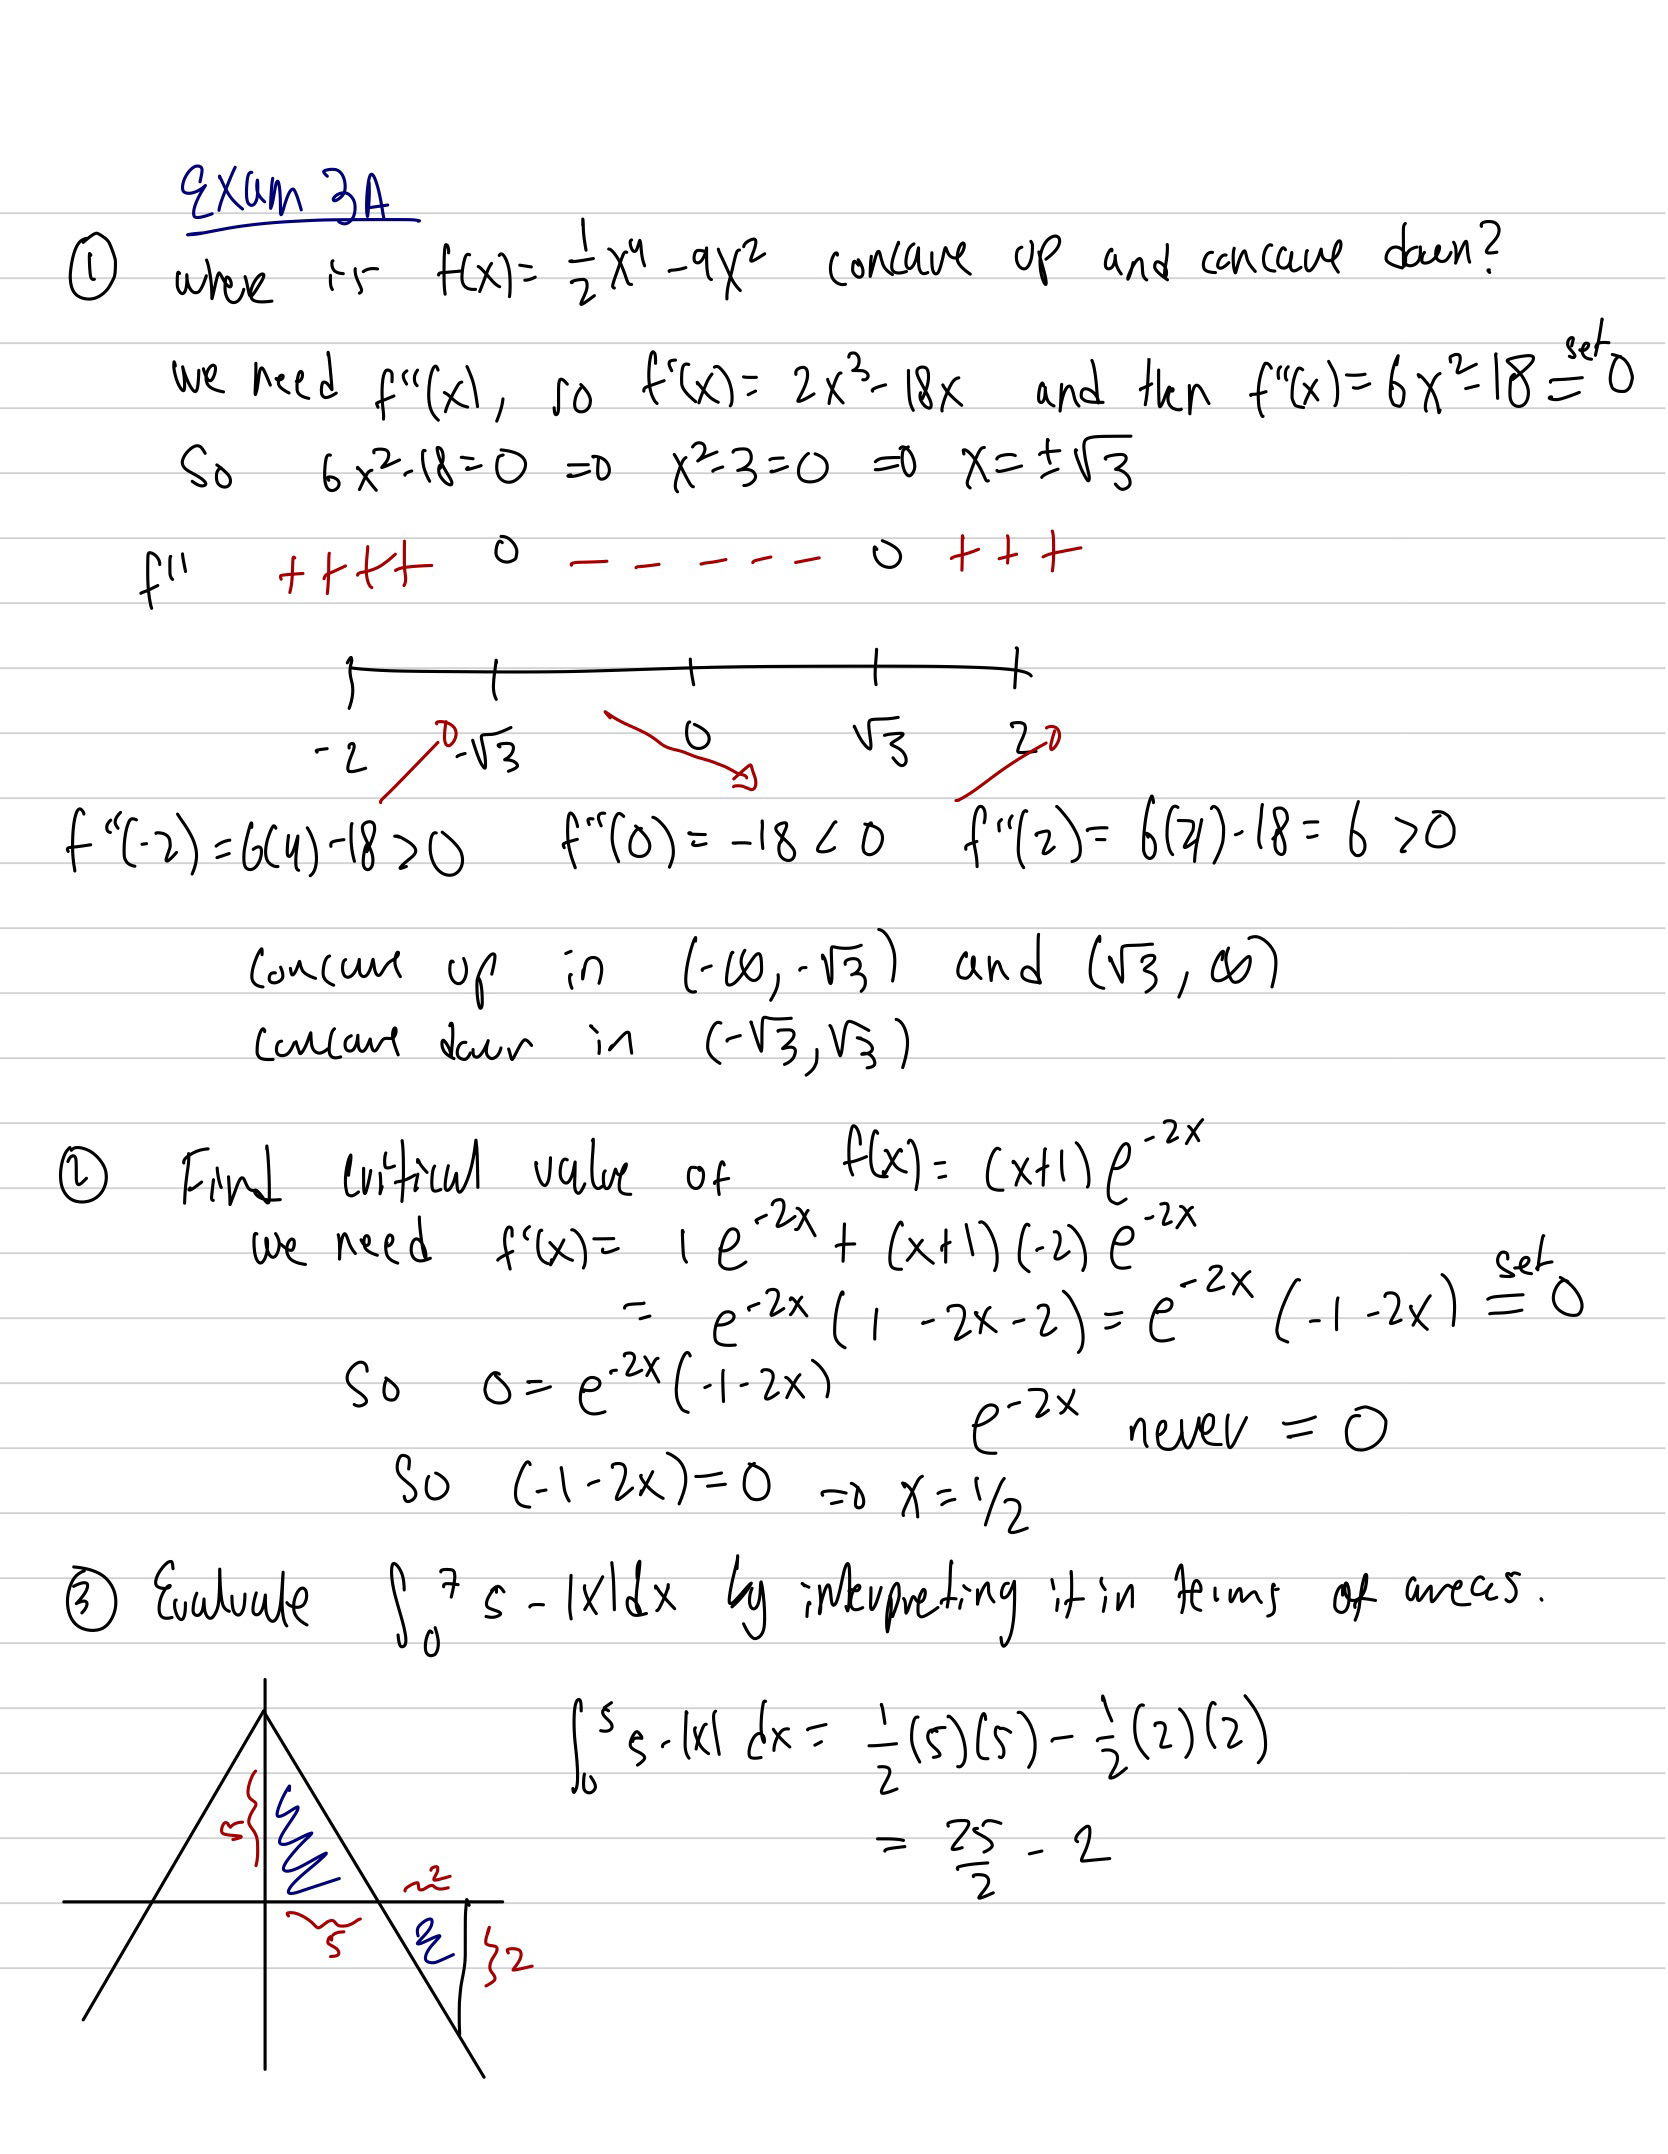 Exam 3A
① where is f(x) = 1/2 x⁴ - 9x² concave up and concave down?
we need f''(x), so f'(x) = 2x³ - 18x and then f''(x) = 6x² - 18 set = 0
So 6x² - 18 = 0 ⇒ x² - 3 = 0 ⇒ x = ±√3
f'' + + + + 0 - - - - - 0 + + +
-2 -√3 0 √3 2
f''(-2) = 6(4) - 18 > 0 f''(0) = -18 < 0 f''(2) = 6(4) - 18 = 6 > 0
concave up in (-∞, -√3) and (√3, ∞)
concave down in (-√3, √3)
② Find critical value of f(x) = (x+1) e^-2x
we need f'(x) = 1 e^-2x + (x+1)(-2) e^-2x
= e^-2x (1 - 2x - 2) = e^-2x (-1 - 2x) set = 0
So 0 = e^-2x (-1 - 2x)
e^-2x never = 0
So (-1 - 2x) = 0 ⇒ x = 1/2
③ Evaluate ∫₀⁷ 5 - |x| dx by interpreting it in terms of areas.
∫₀⁵ 5 - |x| dx = 1/2 (5)(5) - 1/2 (2)(2)
= 25/2 - 2
5
2
5
2